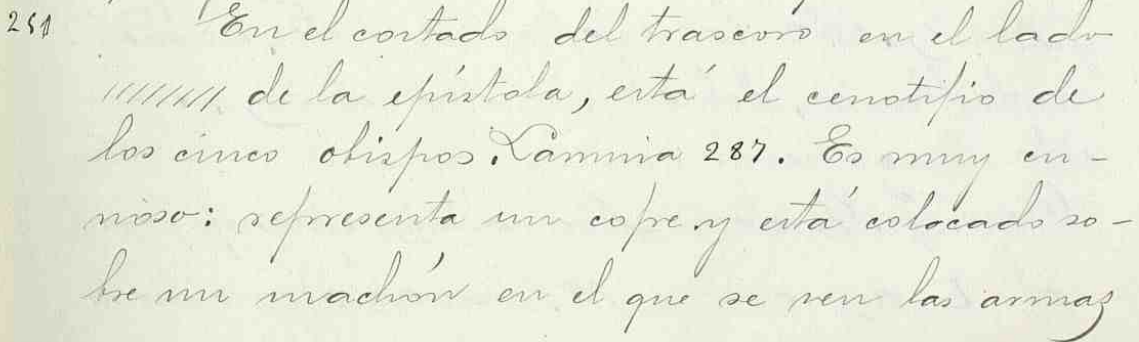 251 En el costado del trascoro en el lado
de la epístola, está el cenotifio de
los cinco obispos. Lámina 287. Es muy cu-
rioso: representa un cofre y está colocado so-
bre un machón en el que se ven las armas